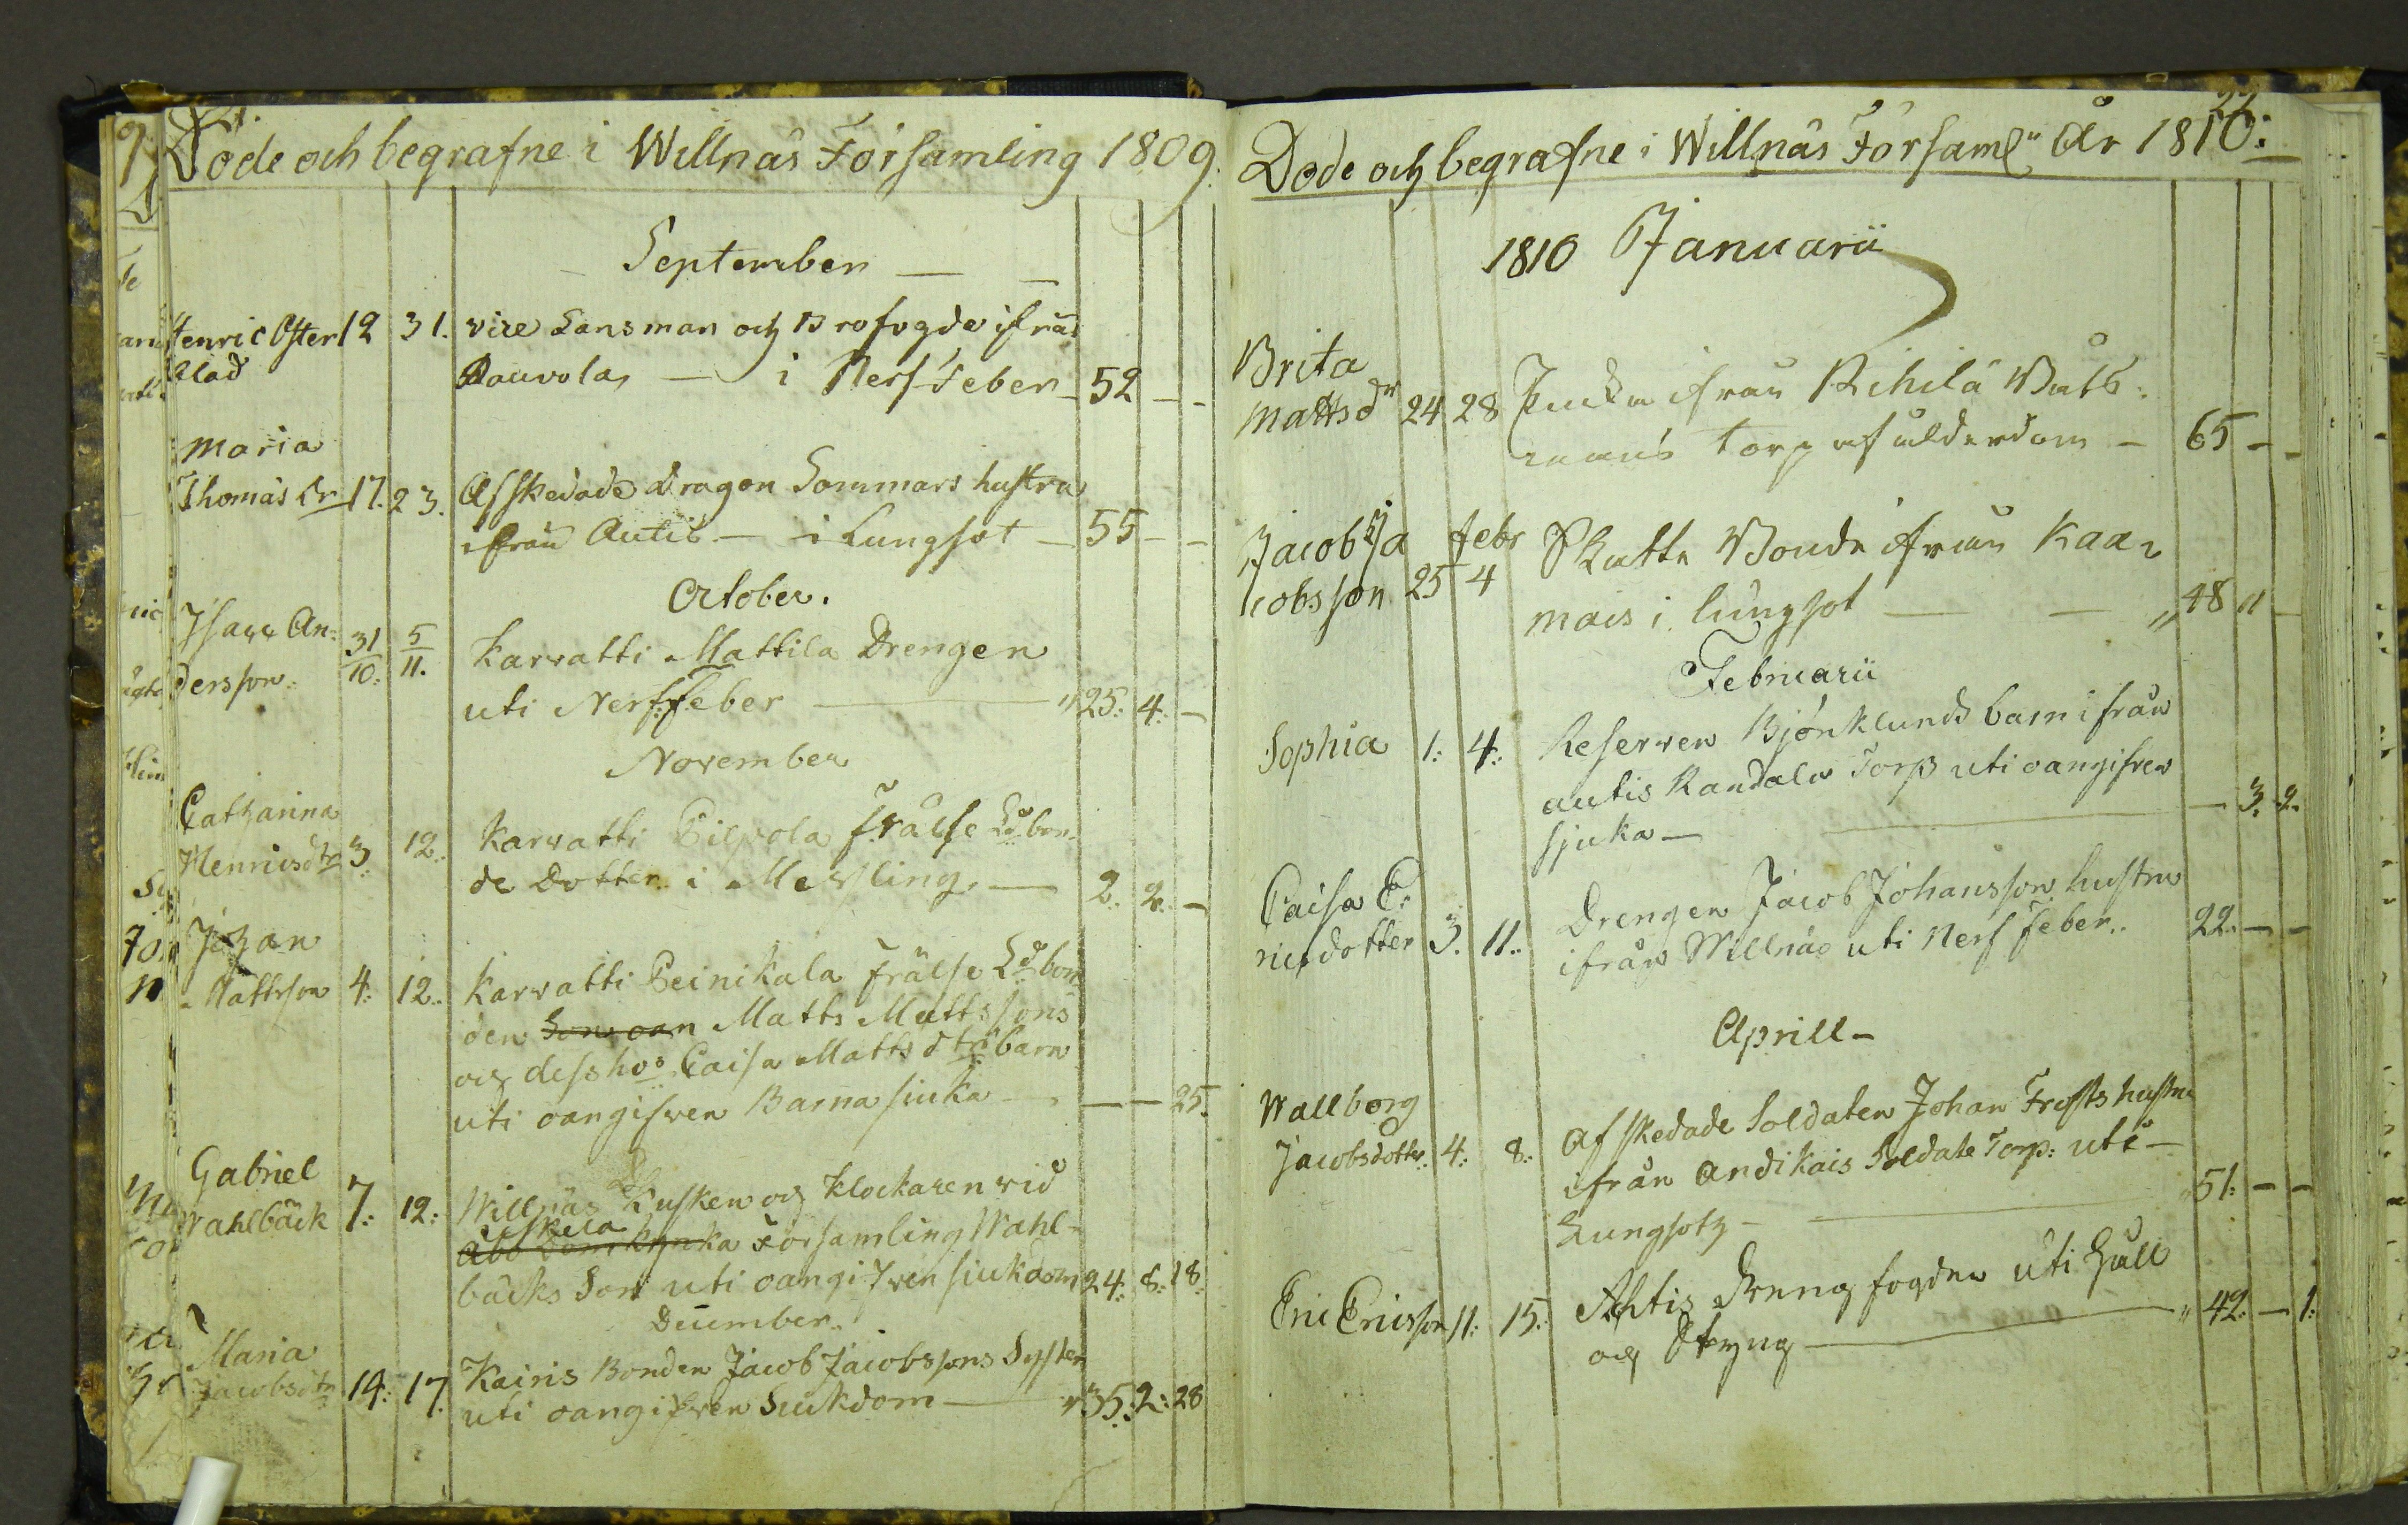 Döde och begrafne i Willnäs Församling 1809.
September
Henric Öster 12 31. vice Länsman och Brofogde ifrån
blad Rauvola i Nerf Feber 52 - -
Maria
Thomas dr 17. 23. Afskedade Dragon Sommars hustru
ifrån Autis - i Lungsot - 55 - -
October.
Isacc An= 31/10: 5/11. Karvatti Mattila Drengen
dersson uti Nerffeber " 25: 4: -
November
Catharina
Henricsdtr 3. 12. Karvatti Pilpola frälse Ldbon=
de Dotter i Messling, 2. 2. -
Johan
Mattsson 4: 12. Karvatti Peinikala frälse Ldbon
den Matts Mattssons
och dess hos Caisa Mattsdtrs barn
uti oangifven Barna siuka - - 25.
Gabriel
Wahlbäck 7: 12: Willnäs Kusken och Klockaren vid
Åbo Domkyrka Församling Wahl-
bäcks Son uti oangifven siukdom 24: 8: 18:
December.
Maria
Jacobsdtr 14: 17. Kairis Bonden Jacob Jacobssons Syster
uti oangifven Siukdom " 35: 2: 28
22.
Döde och begrafne i Willnäs Församl. År 1810:
1810 Januarii
Brita
Mattsdr 24 28 Enka ifrån Rihilä Båts:
mans torp af ålderdom - 65 - -
Jacob Ja febr Skatte Bonde ifrån Kaar
cobsson 25 4 mais i lungsot " 48 " -
Februarii
Sophia 1: 4: Reserven Björklunds barn ifrån
autis Randala Torp uti oangifven
sjuka - - 3. 2.
Caisa E:
ricsdotter 3. 11. Drengen Jacob Johansson hustru
ifrån Willnäs uti Nerf feber.. 22. - -
Aprill -
Wallborg
Jacobsdotter. 4: 8: Afskedade Soldaten Johan Frosts hustru
ifrån Andikais Soldate Torp: uti -
Lungsoth - 51: - -
Eric Ericsson 11: 15: Ahtis Dreng fogden uti Håll
och Styng " 42: - 1: